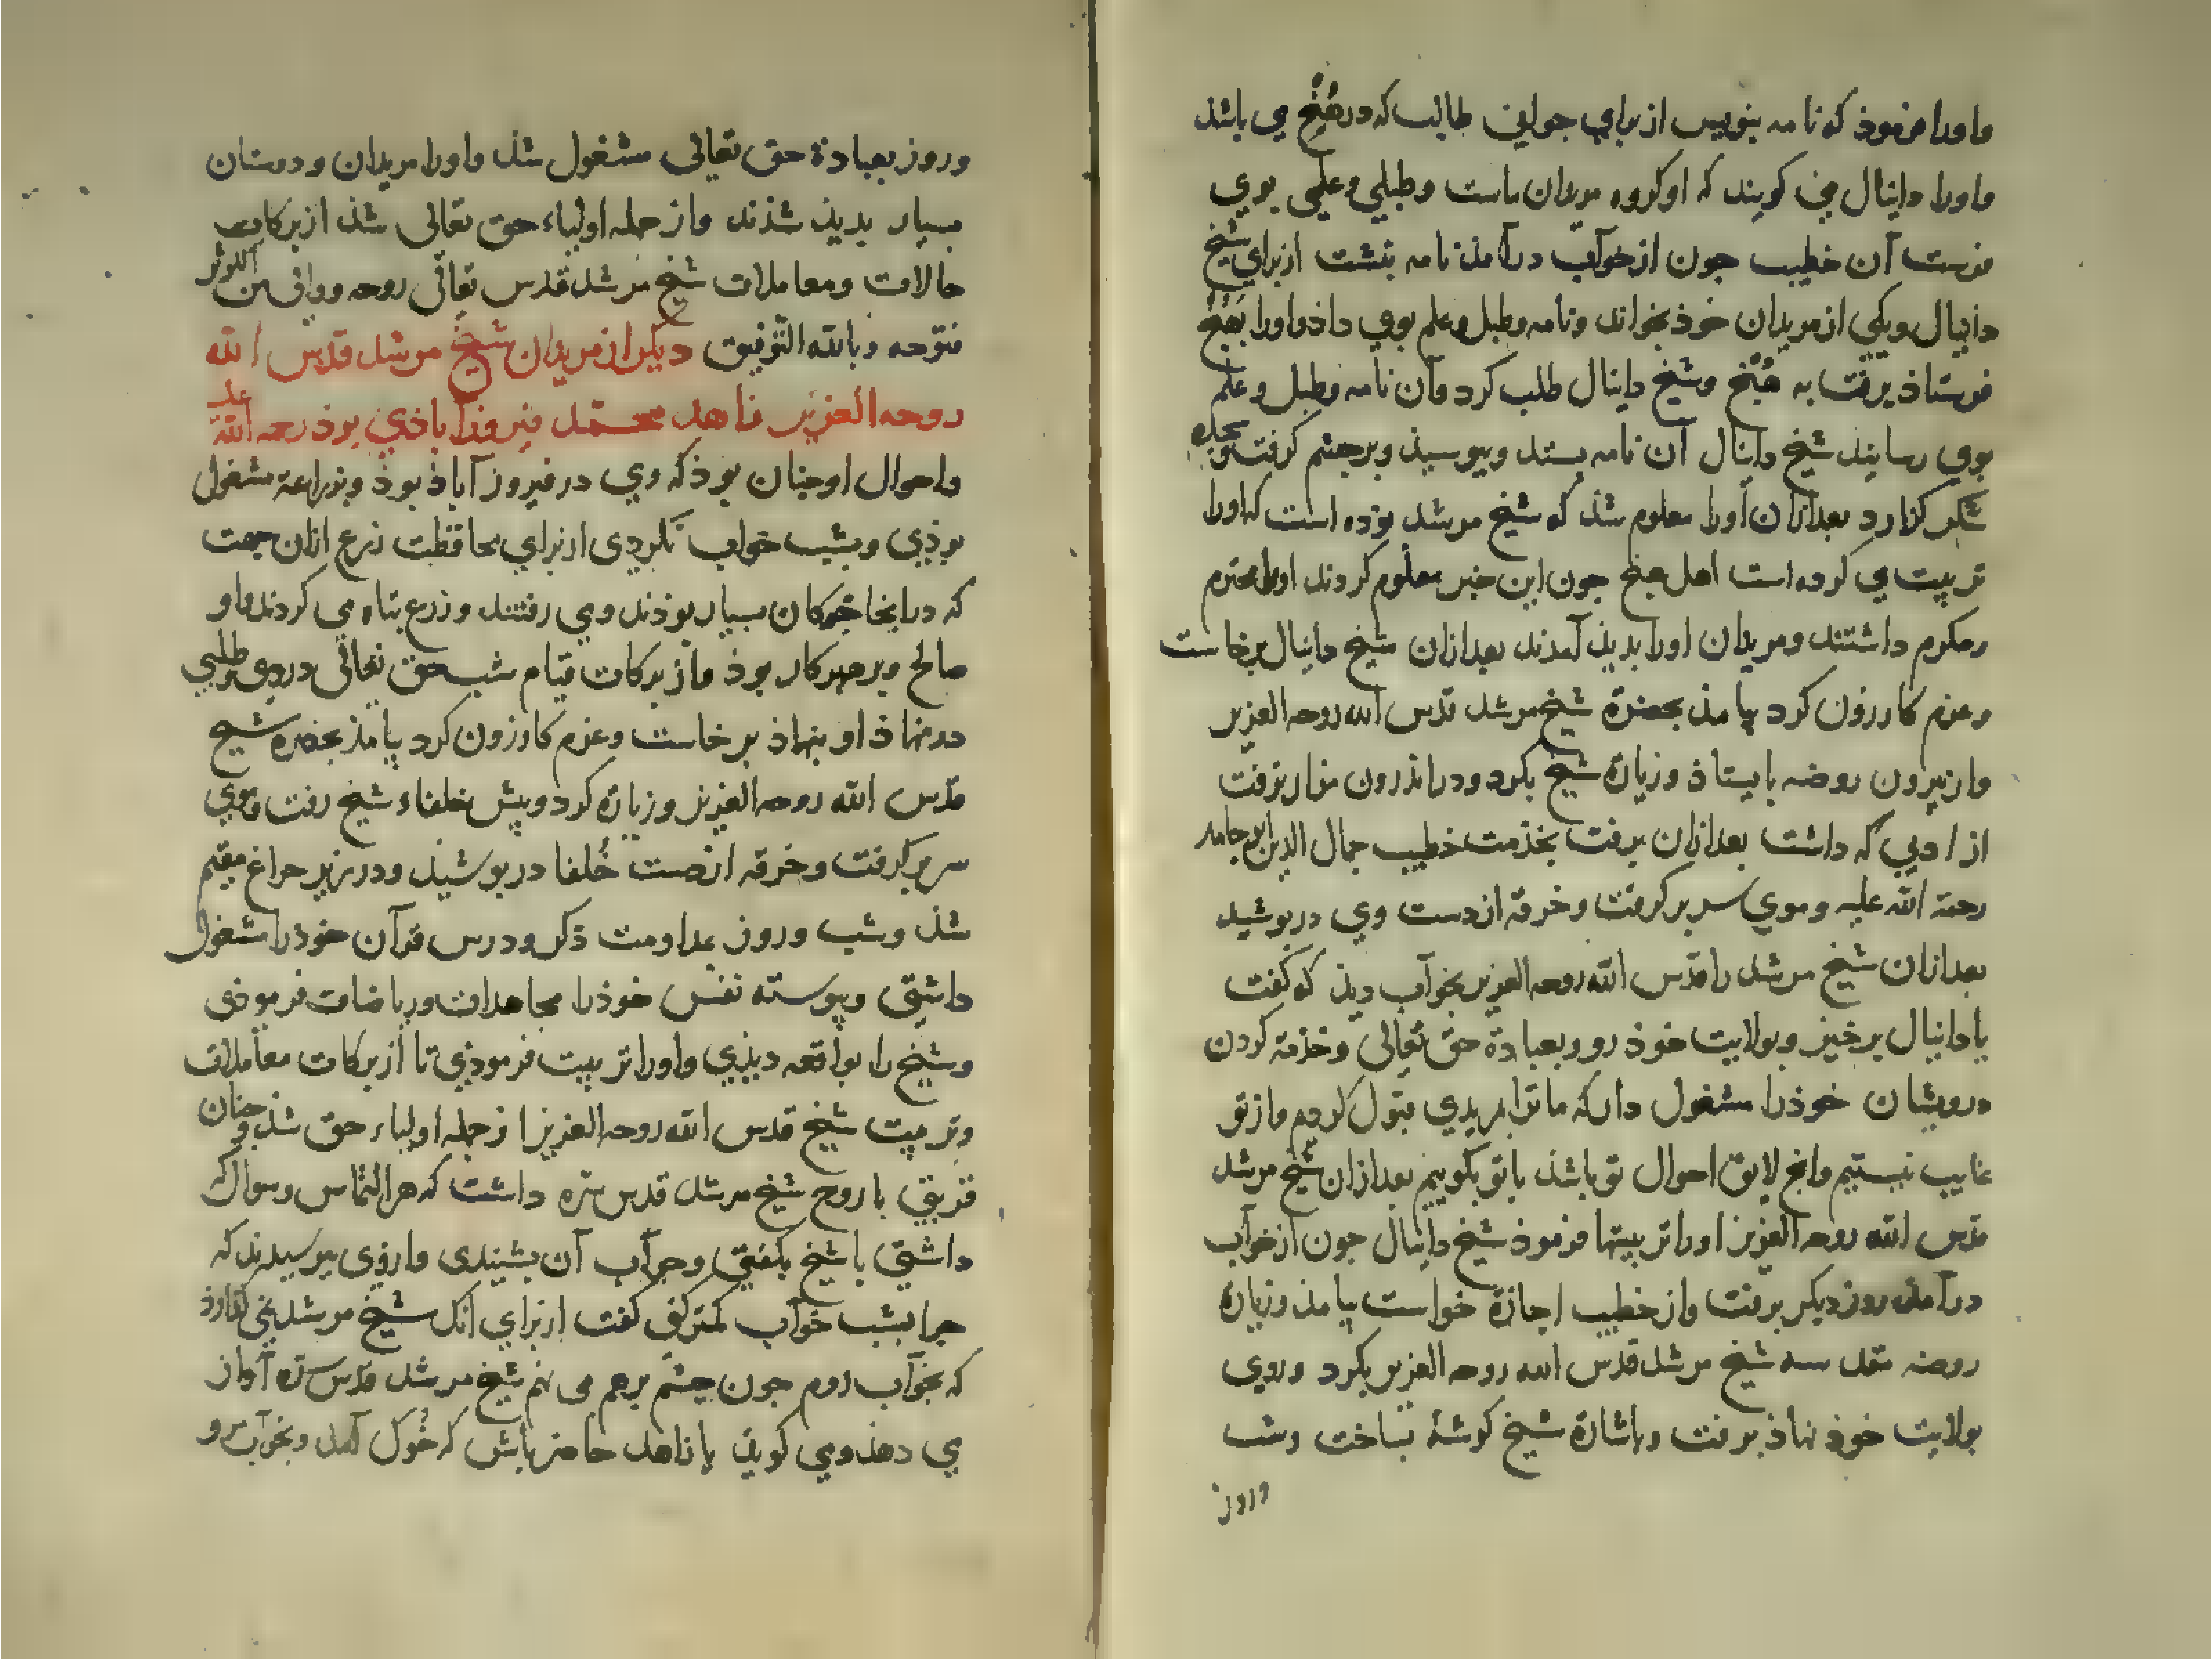 واورا فرموذ كه نامه بنویس از برای جوانی طالب كه در هُنْج می باشذ
واورا دانیال می كویند كه او كروه مریدان ماست وطبلی وعلمی بوی
فرست آن خطیب جون از خوآب درآمذ نامه بنبشت از برای شیخ
دانیال ویكی از مریدان خوذ بخواند ونامه وطبل وعلم بوی داذ واورا بهُنْج
فرستاذ برفت به هُنْج وشیخ دانیال طلب كرد وآن نامه وطبل وعلم
بوی رسانیذ شیخ دانیال آن نامه بستد وببوسیذ وبر جشم كرفت وسجده
شكر كزارد بعد ازان اورا معلوم شذ كه شیخ مرشد بوذه است كه اورا
تربیت می كرده است اهل هنج جون این خبر معلوم كردند اورا محترم
ومكرم داشتند ومریدان اورا بدیذ آمدند بعد ازان شیخ دانیال برخاست
وعزم كازرون كرد بیامذ بحضرة شیخ مرشد قدس الله روحه العزیز
واز بیرون روضه بایستاذ وزیارة شیخ بكرد ودر اندرون مزار نرفت
از ادبی كه داشت بعد ازان برفت بخذمت خطیب جمال الدین ابو حامد
رحمة الله علیه وموی سر بر كرفت وخرقه از دست وی در بوشید
بعد ازان شیخ مرشد را قدس الله روحه العزیز بخوآب دیذ كه كفت
یا دانیال برخیز وبولایت خوذ رو وبعبادة حق تعالی وخذمة كردن
درویشان خوذرا مشغول دار كه ما ترا بمریدی قبول كردیم واز تو
غایب نیستیم وانج لایق احوال تو باشذ با تو بكوییم بعد ازان شیخ مرشد
قدس الله روحه العزیز اورا تربیتها فرموذ شیخ دانیال جون از خوآب
درآمذ روز دیكر برفت واز خطیب اجازة خواست بیامذ وزیارة
روضه مقدسه شیخ مرشد قدس الله روحه العزیز بكرد وروی
بولایت خوذ نهاذ برفت وباشارة شیخ كوشهٔ بساخت وشب
وروز
وروز بعبادة حق تعالی مشغول شذ واورا مریدان ودوستان
بسیار بدیذ شذند واز جمله اولیاء حق تعالی شذ از بركات
حالات ومعاملات شیخ مرشد قدس تعالی روحه ووافی من الكوثر
فتوحه وبالله التوفیق دیكر از مریدان شیخ مرشد قدس الله
روحه العزیز زاهد محمد فیروزآباذی بوذ رحمة الله علیه
واحوال او جنان بوذ كه وی در فیروزآباذ بوذ وبزراعة مشغول
بوذی وبشب خواب نكردی از برای محافظت زرع ازان جهت
كه درانجا خوكان بسیار بوذند ومی رفتند وزرع تباه می كردند واو
صالح وبرهیزكار بوذ واز بركات قیام شب حق تعالی درد طلبی
در نهاذ او بنهاذ برخاست وعزم كازرون كرد بیامذ بحضرة شیخ
قدس الله روحه العزیز وزیارة كرد وپیش خلفاء شیخ رفت وموی
سر بر كرفت وخرقه از دست خُلفا در بوشیذ ودر زیر جراغ مقیم
شذ وشب وروز بمداومت ذكر ودرس قرآن خوذرا مشغول
داشتی وپیوسته نفس خوذرا مجاهدات وریاضات فرموذی
وشیخ را بواقعه دیذی واورا تربیت فرموذی تا از بركات معاملات
وتربیت شیخ قدس الله روحه العزیز از جمله اولیاء حق شذ وجنان
قربتی با روح شیخ مرشد قدس سره داشت كه هر التماس وسوال كه
داشتی با شیخ بكفتی وجوآب آن بشنیدی واز وی ببرسیدند كه
جرا بشب خوآب كمتر كنی كفت از برای آنك شیخ مرشد نمی كذارد
كه بخوآب روم جون جشم برهم می نهم شیخ مرشد قدس سره آواز
می دهذ ومی كویذ یا زاهد حاضر باش كه خُوك آمد وبخوآب مرو